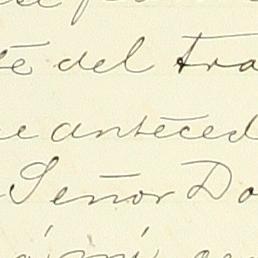 te del tra
e anteced
Señor Do